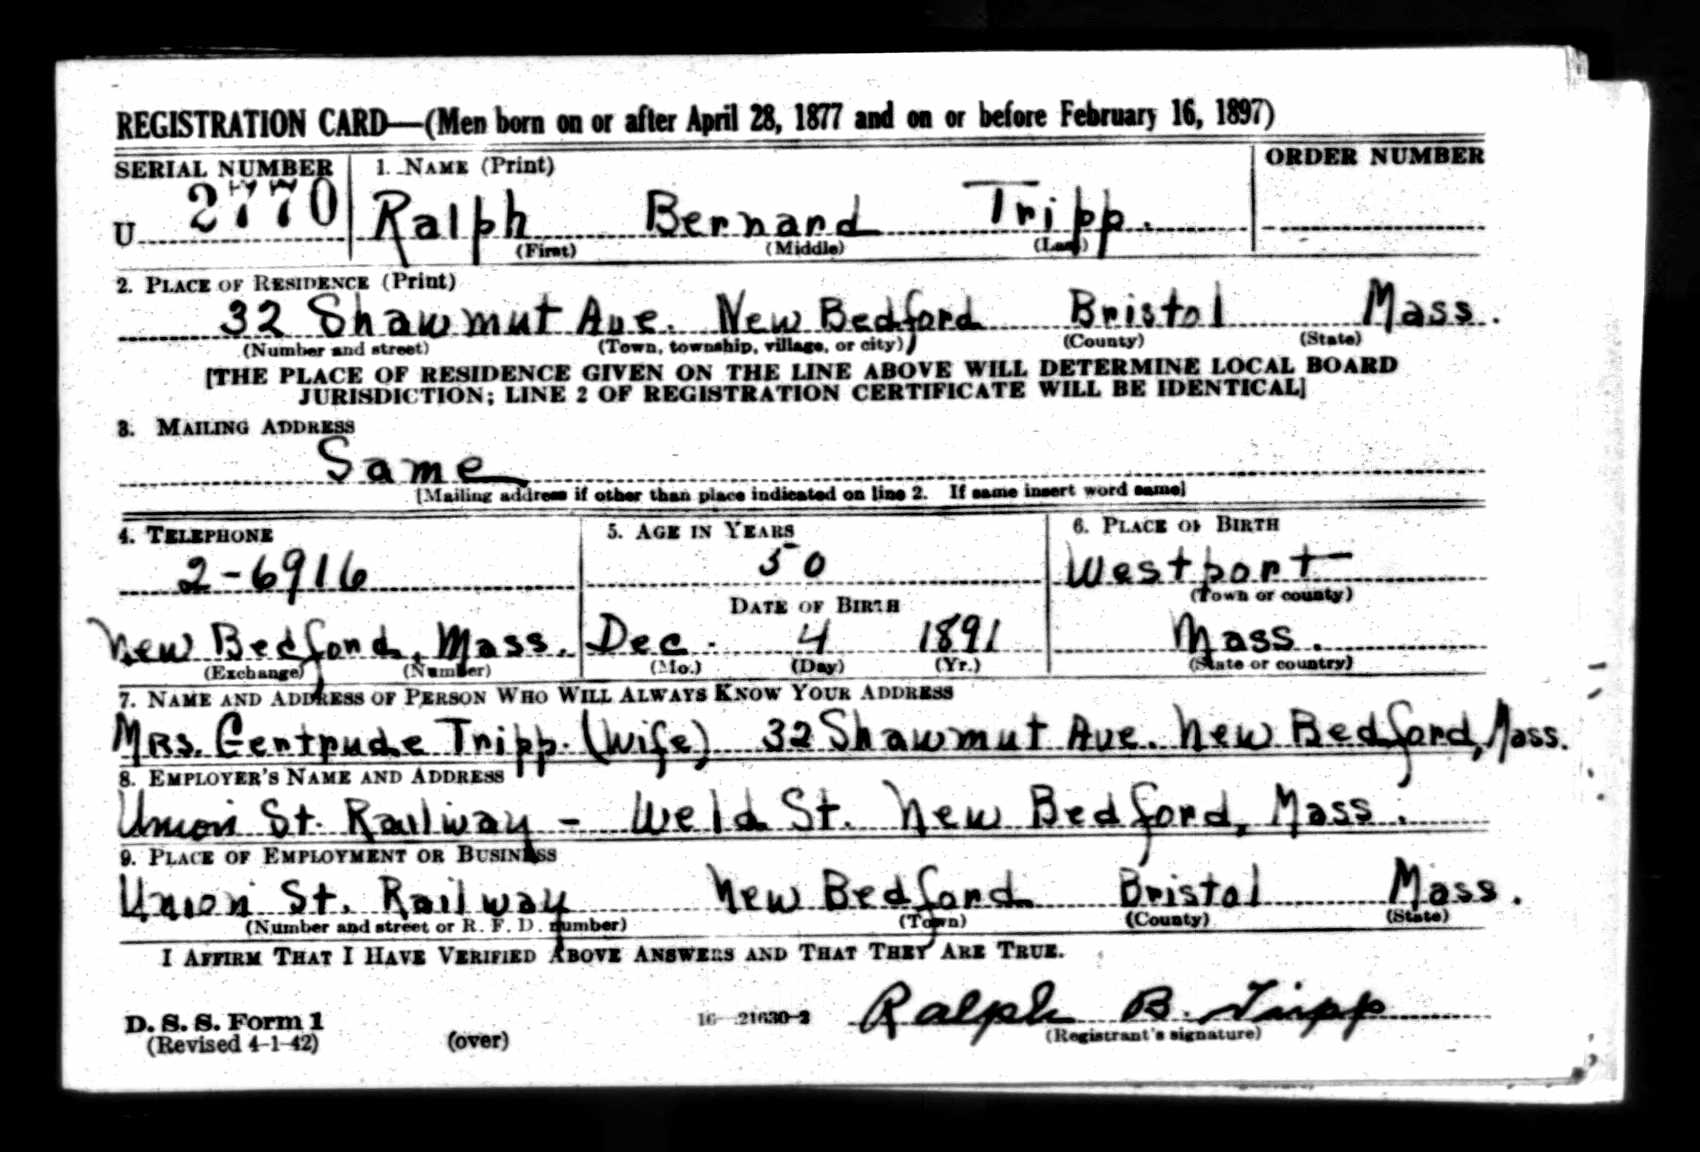 REGISTRATION CARD—(Men born on or after April 28, 1877 and on or before February 16, 1897)
SERIAL NUMBER 1. NAME (Print) ORDER NUMBER
U 2770 Ralph Bernard Tripp.
(First) (Middle) (Last)
2. PLACE OF RESIDENCE (Print)
32 Shawmut Ave. New Bedford, Bristol Mass.
(Number and street) (Town, township, village, or city) (County) (State)
[THE PLACE OF RESIDENCE GIVEN ON THE LINE ABOVE WILL DETERMINE LOCAL BOARD
JURISDICTION; LINE 2 OF REGISTRATION CERTIFICATE WILL BE IDENTICAL]
3. MAILING ADDRESS
Same
[Mailing address if other than place indicated on line 2. If same insert word same]
4. TELEPHONE 5. AGE IN YEARS 6. PLACE OF BIRTH
2-6916 50 Westport
(Town or county)
DATE OF BIRTH
New Bedford, Mass. Dec. 4 1891 Mass.
(Exchange) (Number) (Mo.) (Day) (Yr.) (State or country)
7. NAME AND ADDRESS OF PERSON WHO WILL ALWAYS KNOW YOUR ADDRESS
Mrs. Gertrude Tripp. (Wife) 32 Shawmut Ave. New Bedford, Mass.
8. EMPLOYER'S NAME AND ADDRESS
Union St. Railway - Weld St. New Bedford, Mass.
9. PLACE OF EMPLOYMENT OR BUSINESS
Union St. Railway New Bedford Bristol Mass.
(Number and street or R. F. D. number) (Town) (County) (State)
I AFFIRM THAT I HAVE VERIFIED ABOVE ANSWERS AND THAT THEY ARE TRUE.
D. S. S. Form 1 16—21630-2 Ralph B. Tripp
(Revised 4-1-42) (over) (Registrant's signature)